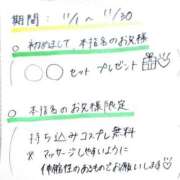 期間: 11/1 〜 11/30
初めまして、本指名のお客様
○○セット プレゼント
本指名のお客様限定
持ち込みコスプレ無料
※ マッサージしやすいように
伸縮性のあるものでお願いします